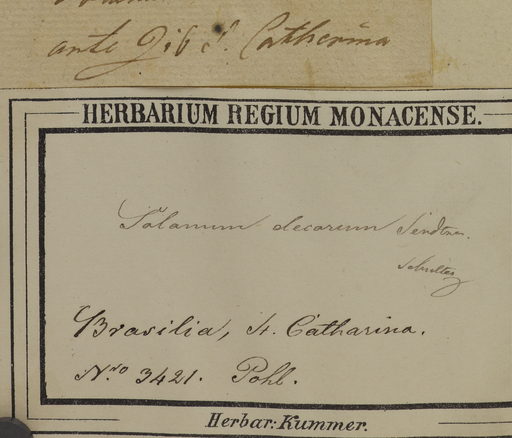 ante Gib S. Catherina
HERBARIUM REGIUM MONACENSE.
Solanum decorum Sendtner.
Brasilia, S. Catharina.
Nro 3421. Pohl.
Herbar: Kummer.